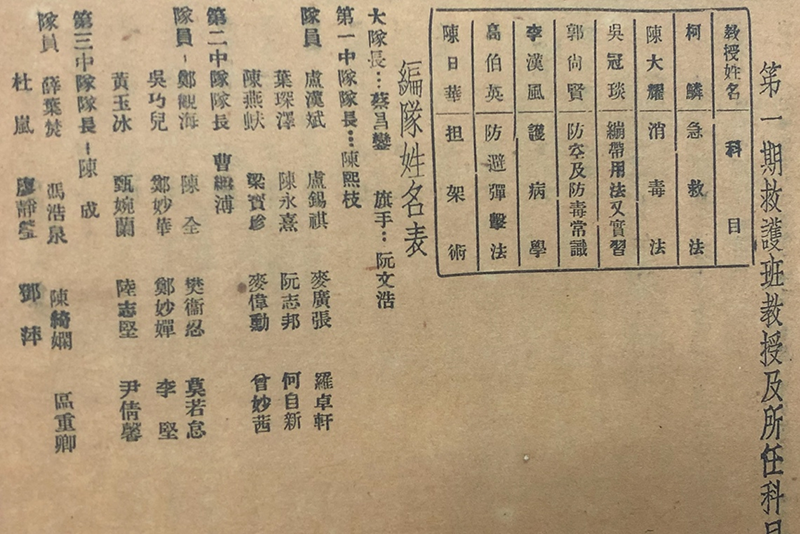 第一期救護班教授及所任科目
教授姓名 科目
柯麟 急救法
陳大耀 消毒法
吳冠琰 繃帶用法及實習
郭尚賢 防空及防毒常識
李漢風 護病學
高伯英 防避彈擊法
陳日華 担架術
編隊姓名表
大隊長…蔡昌鑾 旗手…阮文浩
第一中隊隊長…陳熙枝
隊員 盧漢斌 盧錫祺 麥廣張 羅卓軒
葉琛澤 陳永熹 阮志邦 何自新
陳燕蚨 梁寳珍 麥偉勳 曾妙茜
第二中隊隊長 曹 溥
隊員 鄭觀海 陳全 樊衞忍 莫若怠
吳巧兒 鄭妙華 鄭妙嬋 李堅
黃玉冰 甄婉蘭 陸志堅 尹倩馨
第三中隊隊長 陳成
隊員 薛葉焚 馮浩泉 陳綺嫻 區重卿
杜嵐 廖靜瑩 鄧萍